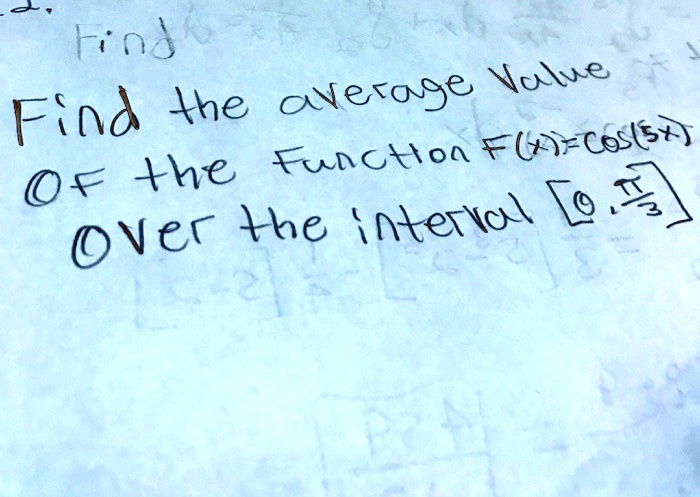 2.
Find
Find the average value
OF the Function F(x)=cos(5x)
Over the interval [0,π/3]